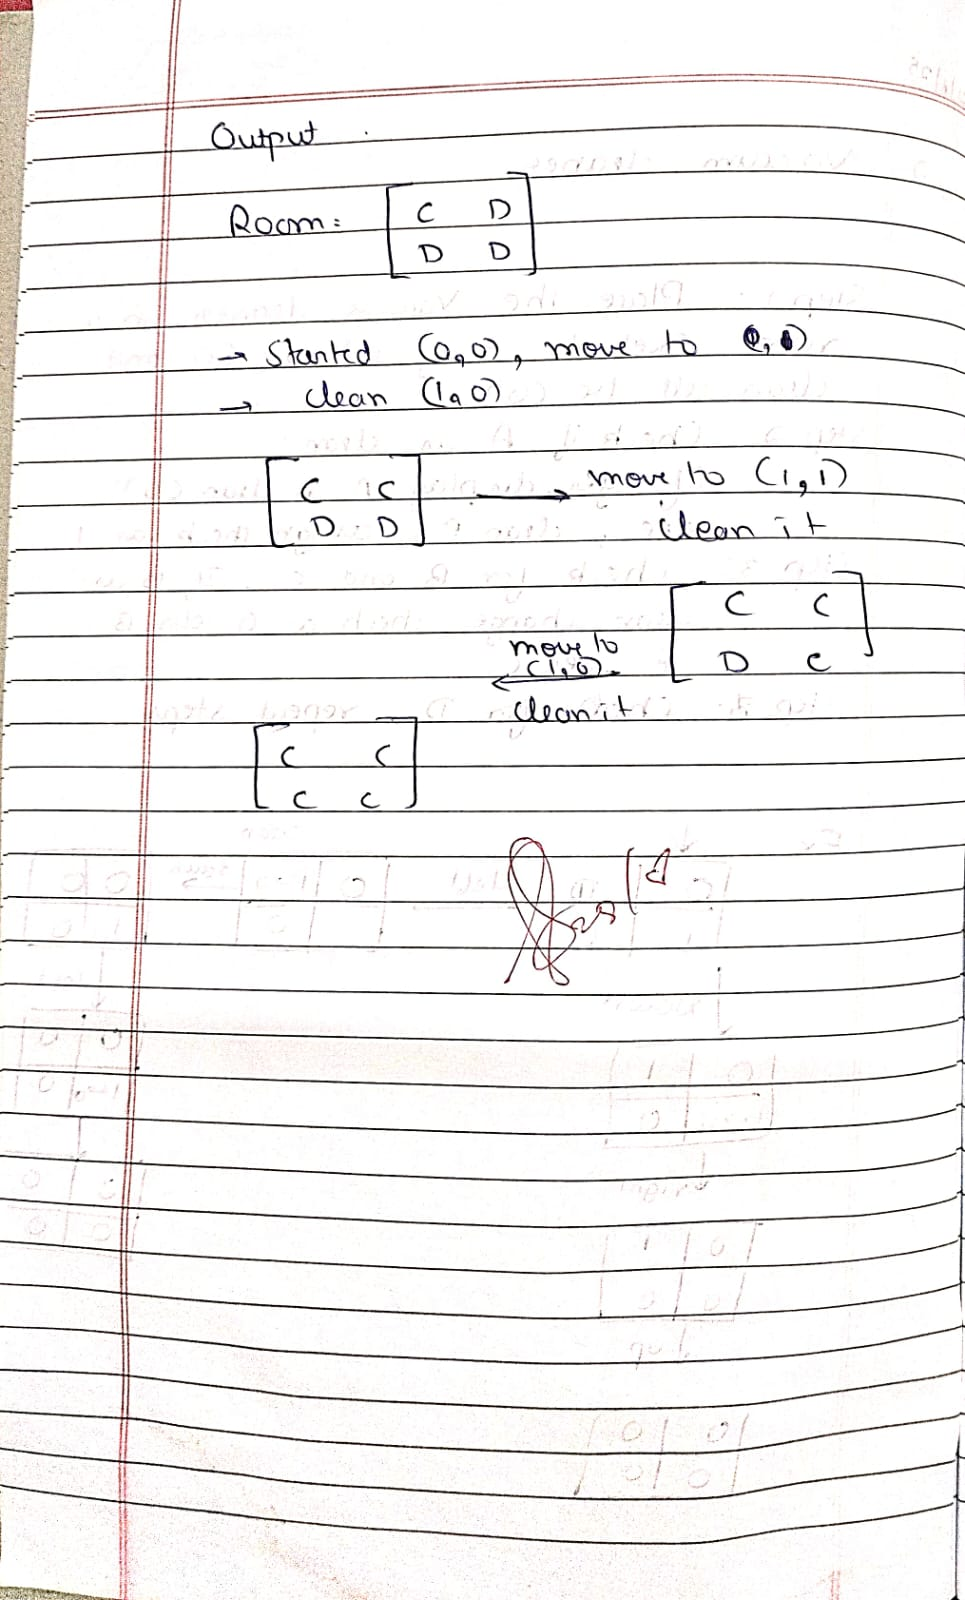 Output
Room: [ C D
D D ]
→ Started (0,0), move to
→ clean (1,0)
[ C C
D D ] → move to (1,1)
clean it
[ C C
D C ]
move to
(1,0)
←
clean it
[ C C
C C ]